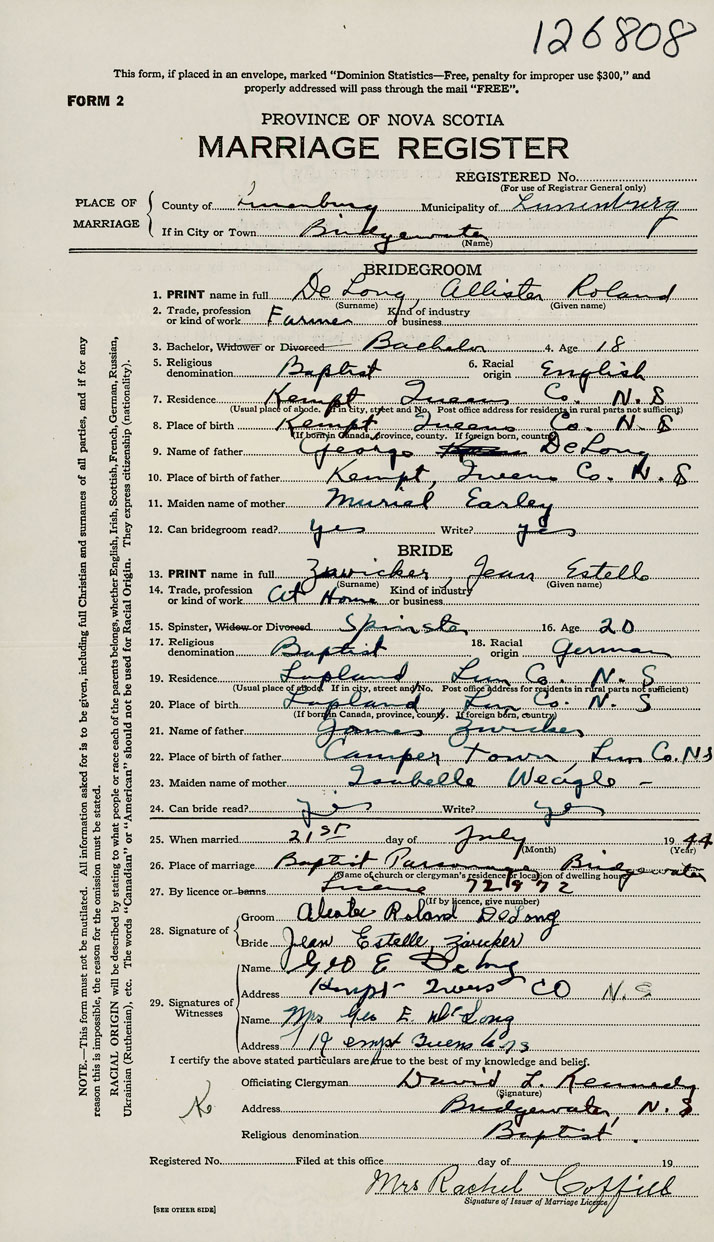 126808
This form, if placed in an envelope, marked "Dominion Statistics—Free, penalty for improper use $300," and
properly addressed will pass through the mail "FREE".
FORM 2
PROVINCE OF NOVA SCOTIA
MARRIAGE REGISTER
REGISTERED No.
(For use of Registrar General only)
PLACE OF MARRIAGE
County of Lunenburg Municipality of Lunenburg
If in City or Town Bridgewater
(Name)
BRIDEGROOM
1. PRINT name in full De Long, Allister Roland
(Surname) (Given name)
2. Trade, profession or kind of work Farmer Kind of industry or business
3. Bachelor, Widower or Divorced Bachelor 4. Age 18
5. Religious denomination Baptist 6. Racial origin English
7. Residence Kempt Queens Co. N. S
(Usual place of abode. If in city, street and No. Post office address for residents in rural parts not sufficient)
8. Place of birth Kempt, Queens Co. N. S
(If born in Canada, province, county. If foreign born, country)
9. Name of father George DeLong
10. Place of birth of father Kempt, Queens Co. N. S
11. Maiden name of mother Muriel Earley
12. Can bridegroom read? yes Write? yes
BRIDE
13. PRINT name in full Zwicker, Jean Estelle
(Surname) (Given name)
14. Trade, profession or kind of work At Home Kind of industry or business
15. Spinster, Widow or Divorced Spinster 16. Age 20
17. Religious denomination Baptist 18. Racial origin German
19. Residence Lapland Lun Co. N. S
(Usual place of abode. If in city, street and No. Post office address for residents in rural parts not sufficient)
20. Place of birth Lapland, Lun Co. N. S
(If born in Canada, province, county. If foreign born, country)
21. Name of father James Zwicker
22. Place of birth of father Camper Town, Lun Co. N S
23. Maiden name of mother Isabelle Weagle -
24. Can bride read? yes Write? yes
25. When married 21st day of July 19 44
(Month) (Year)
26. Place of marriage Baptist Parsonage Bridgewater
(Name of church or clergyman's residence or location of dwelling house)
27. By licence or banns License 721972
(If by licence, give number)
28. Signature of
Groom Roland DeLong
Bride Jean Estelle, Zwicker
29. Signatures of Witnesses
Name Geo E DeLong
Address Kempt CO N.S
Name Mrs Geo E. DeLong
Address
I certify the above stated particulars are true to the best of my knowledge and belief.
Officiating Clergyman David L. Kennedy
(Signature)
Address Bridgewater, N. S
Religious denomination Baptist.
Registered No. Filed at this office day of 19
Mrs Rachel Coffill
Signature of Issuer of Marriage Licence
[SEE OTHER SIDE]
NOTE.—This form must not be mutilated. All information asked for is to be given, including full Christian and surnames of all parties, and if for any
reason this is impossible, the reason for the omission must be stated.
RACIAL ORIGIN will be described by stating to what people or race each of the parents belongs, whether English, Irish, Scottish, French, German, Russian,
Ukrainian (Ruthenian), etc. The words "Canadian" or "American" should not be used for Racial Origin. They express citizenship (nationality).